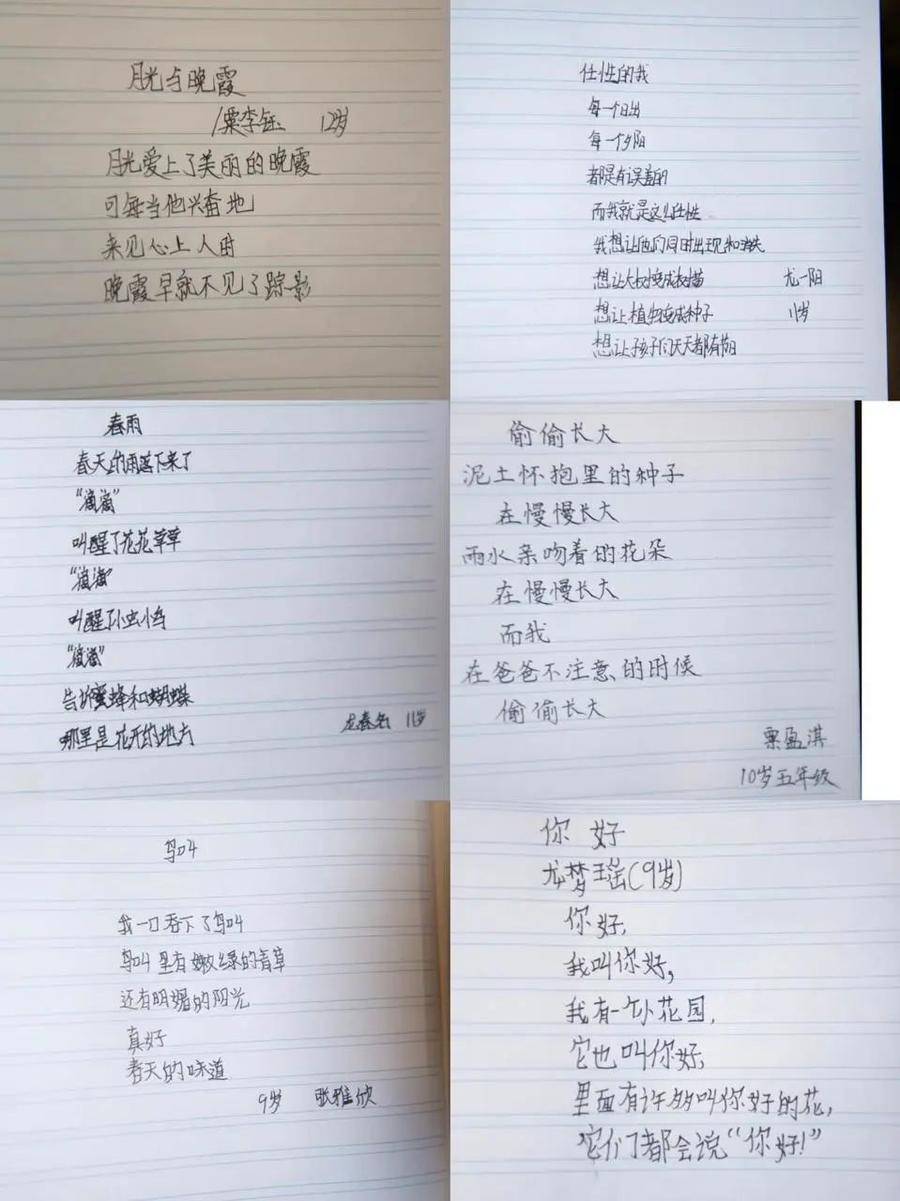 月光与晚霞
粟李钰 12岁
月光爱上了美丽的晚霞
可每当他兴奋地
来见心上人时
晚霞早就不见了踪影
任性的我
每一个日出
每一个夕阳
都是有误差的
而我就是这么任性
我想让他们同时出现和消失
想让大树变成树苗 尤一阳
想让植物变成种子 11岁
想让孩子们天天都有节日
春雨
春天的雨落下来了
“滴滴”
叫醒了花花草草
“滴滴”
叫醒了小虫小鸟
“滴滴”
告诉蜜蜂和蝴蝶
哪里是花开的地方 11岁
偷偷长大
泥土怀抱里的种子
在慢慢长大
雨水亲吻着的花朵
在慢慢长大
而我
在爸爸不注意的时候
偷偷长大
粟盈淇
10岁五年级
鸟叫
我一口吞下了鸟叫
鸟叫里有嫩绿的青草
还有明媚的阳光
真好
春天的味道
9岁 张雅欣
你好
龙梦瑶(9岁)
你好,
我叫你好,
我有一个小花园,
它也叫你好,
里面有许多叫你好的花,
它们都会说“你好!”